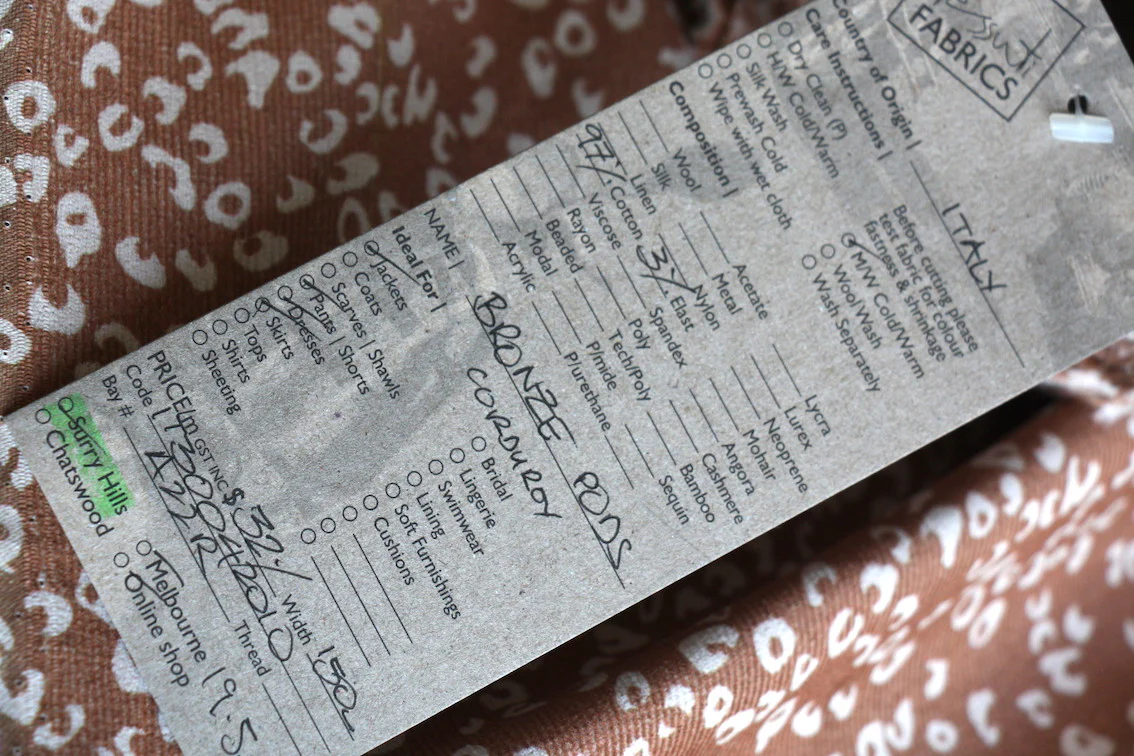 FABRICS
Country of Origin | ITALY
Care Instructions |
Dry Clean (P)
H/W Cold/Warm
Silk Wash
Prewash Cold
Wipe with wet cloth
Before cutting please
test fabric for colour
fastness & shrinkage
M/W Cold/Warm
Wool Wash
Wash Separately
Composition |
Wool
Silk
Linen
97% Cotton
Viscose
Rayon
Beaded
Modal
Acrylic
Acetate
Metal
Nylon
3% Elast
Spandex
Poly
Tech/Poly
P/nide
P/urethane
Lycra
Lurex
Neoprene
Mohair
Angora
Cashmere
Bamboo
Sequin
NAME | BRONZE PODS
CORDUROY
Ideal For |
Jackets
Coats
Scarves | Shawls
Pants | Shorts
Dresses
Skirts
Tops
Shirts
Sheeting
Bridal
Lingerie
Swimwear
Lining
Soft Furnishings
Cushions
PRICE/m GST INC $ 32./ Width 150
Code
Bay # A22R Thread
Surry Hills
Chatswood
Melbourne 19.5
Online shop